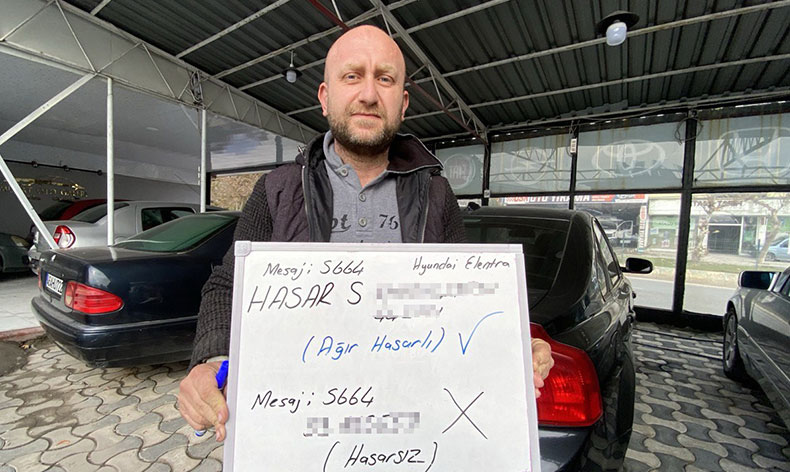 Mesaj: S664 Hyundai Elentra
HASAR S
(Ağır Hasarlı) ✓
Mesaj: S664 X
(HasarSIZ)
pt 76